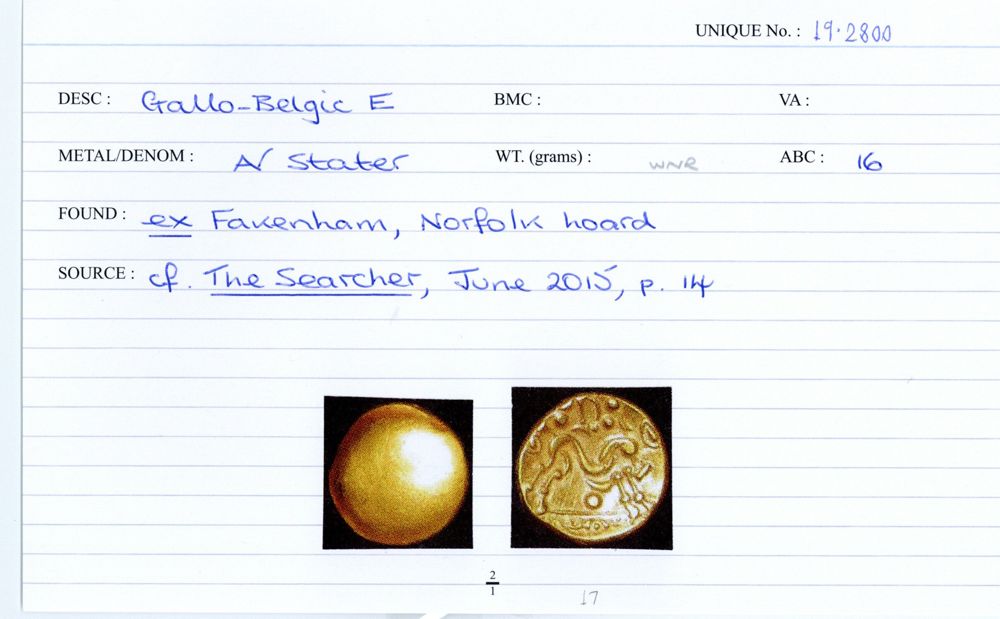 UNIQUE No. : 19.2800
DESC : Gallo-Belgic E BMC : VA :
METAL/DENOM : AV Stater WT. (grams) : WNR ABC : 16
FOUND : ex Fakenham, Norfolk hoard
SOURCE : cf. The Searcher, June 2015, p. 14
2
1
17